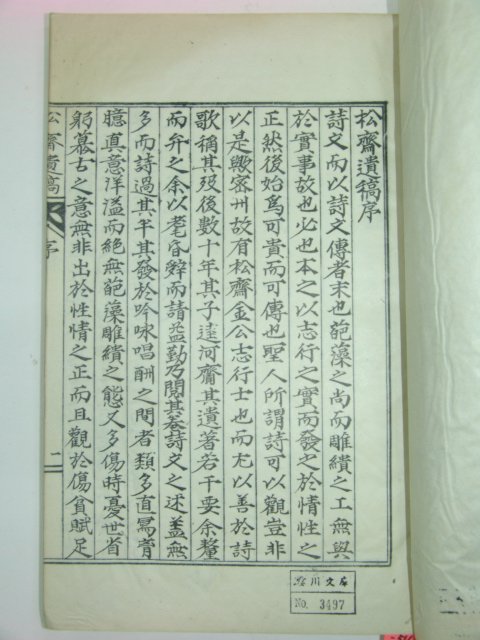 松齋遺稿序
詩文而以詩文傳者末也葩藻之尚而雕繢之工無與
於實事故也必也本之以志行之實而發之於情性之
正然後始爲可貴而可傳也聖人所謂詩可以觀豈非
以是歟密州故有松齋金公志行士也而尤以善於詩
歌稱其歿後數十年其子達河齎其遺著若干要余釐
而弁之余以耄昏辭而請益勤乃閱其卷詩文之述盖無
多而詩過其半其發於吟咏唱酬之間者類多直寫胷
臆真意洋溢而絕無葩藻雕繢之態又多傷時憂世省
躬慕古之意無非出於性情之正而且觀於傷貧賦足
松齋遺稿
序
一
壑川文庫
No. 3497